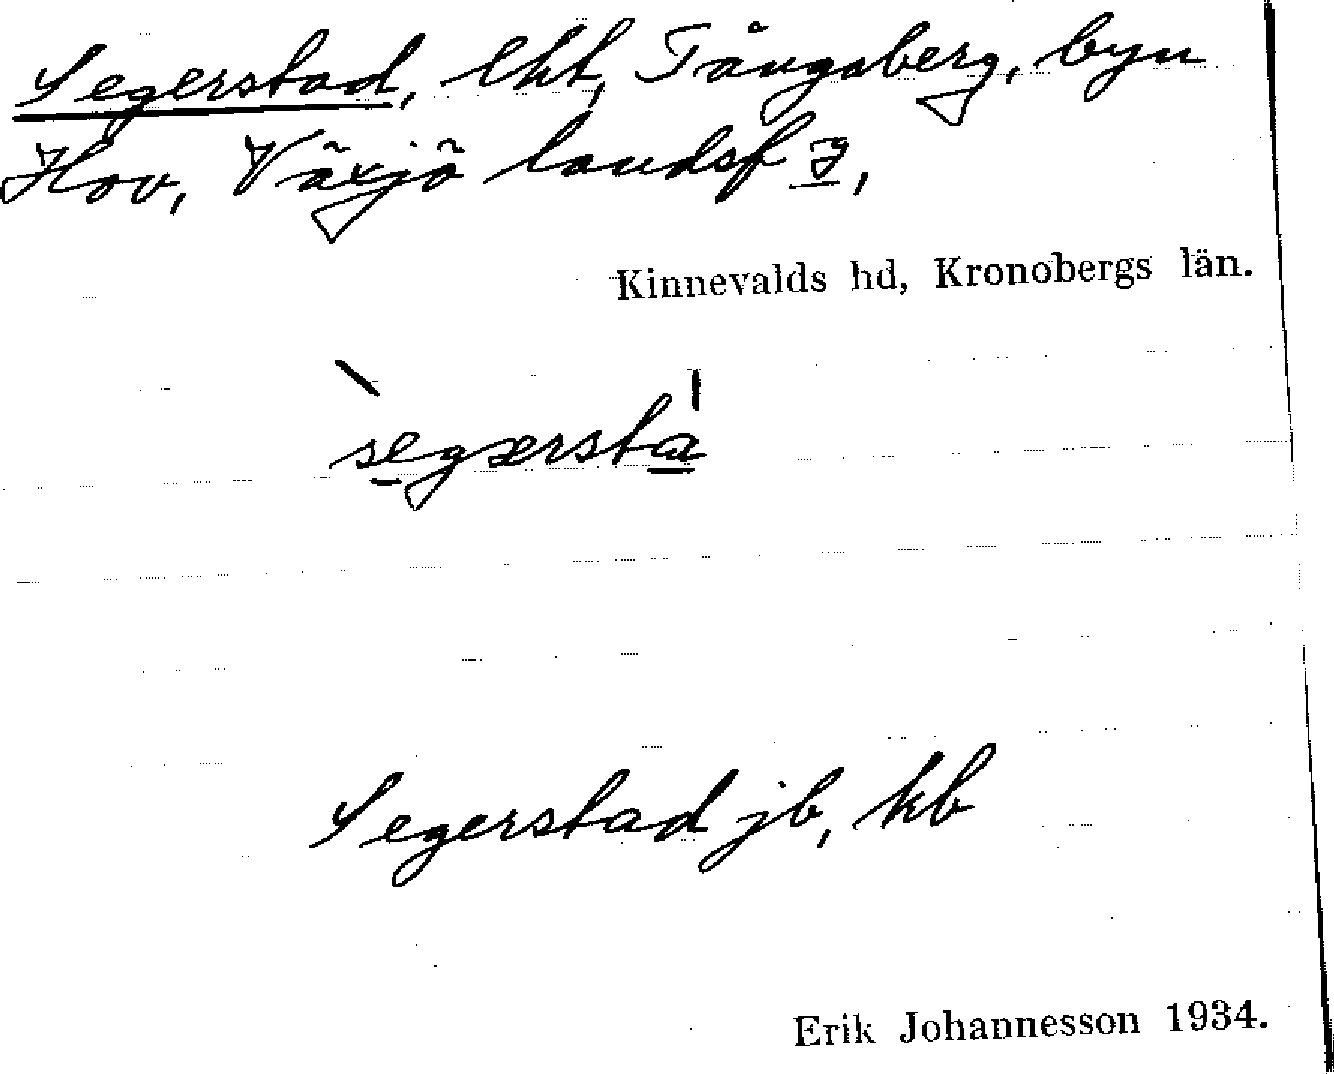 Segerstad, lht, Tångaberg, byn
Hov, Växjö landsf I,
Kinnevalds hd, Kronobergs län.
segærsta
Segerstad jb, kb
Erik Johannesson 1934.